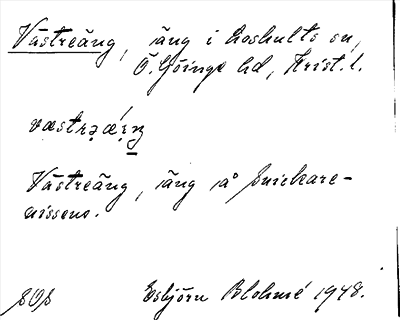 Västreäng, äng i Loshults sn,
Ö. Göinge hd, Krist. l.
væstrə̣ǽ.ıŋ
Västreäng, äng på Snickare-
nissens.
SOS Esbjörn Blohmé 1948.